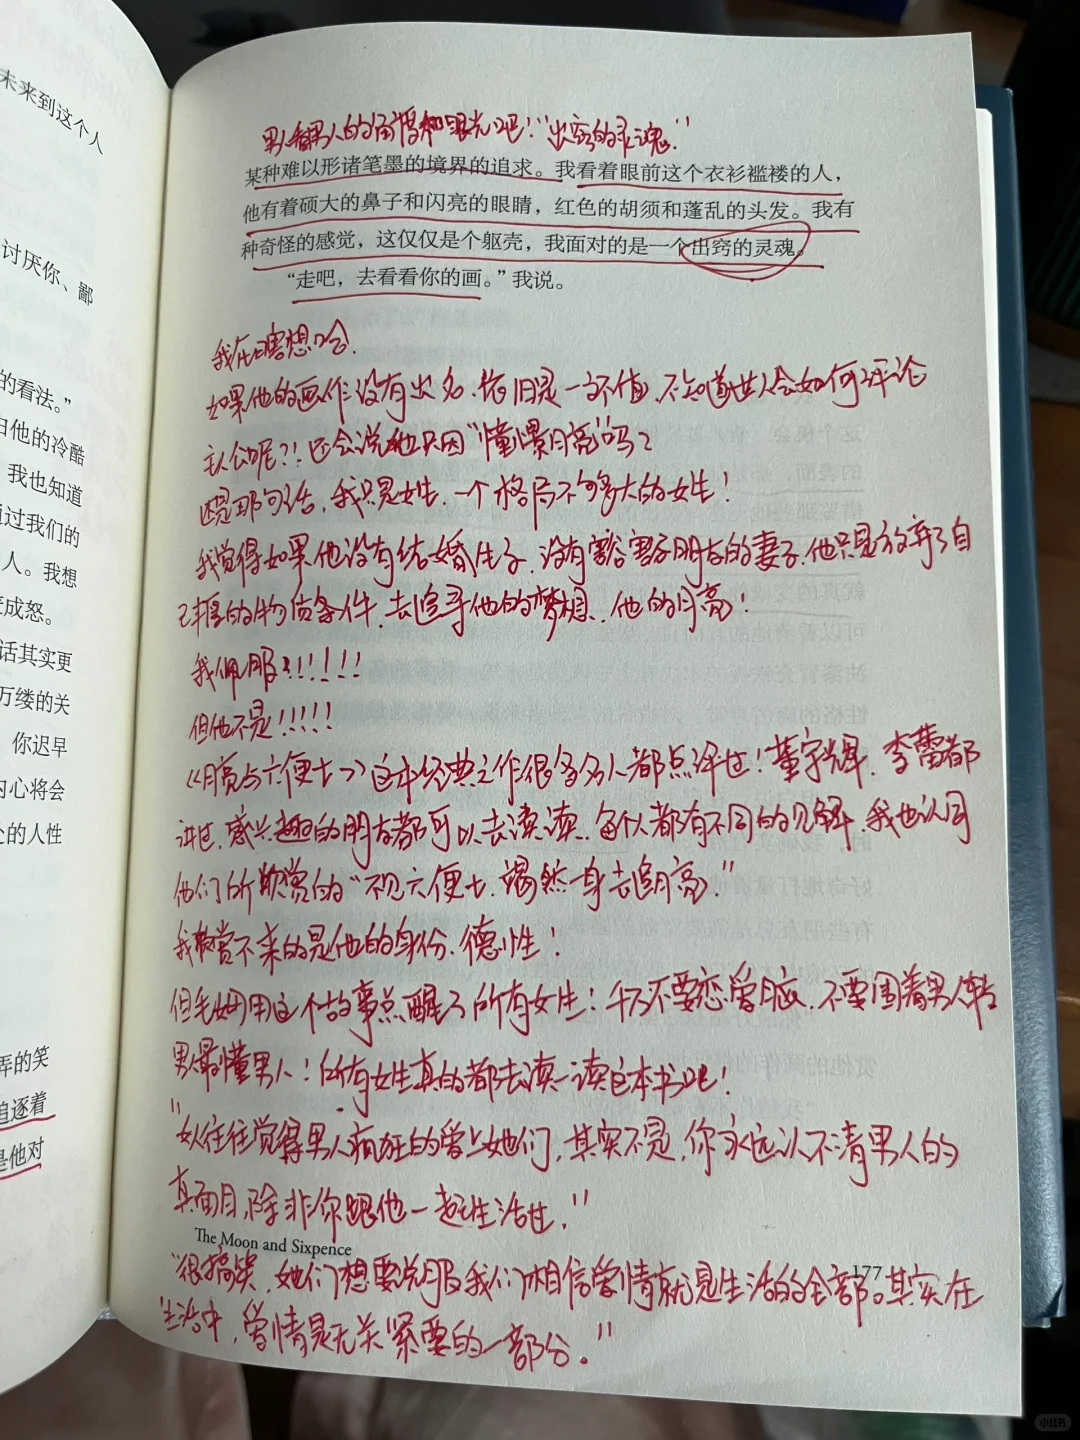 未来到这个人
讨厌你、鄙
的看法。”
白他的冷酷
我也知道
通过我们的
人。我想
变成怒。
话其实更
万缕的关
你迟早
内心将会
处的人性
弄的笑
追逐着
是他对
男人看男人的角度和眼光吧！“出窍的灵魂”
某种难以形诸笔墨的境界的追求。我看着眼前这个衣衫褴褛的人，
他有着硕大的鼻子和闪亮的眼睛，红色的胡须和蓬乱的头发。我有
种奇怪的感觉，这仅仅是个躯壳，我面对的是一个出窍的灵魂。
“走吧，去看看你的画。”我说。
我在瞎想哈.
如果他的画作没有出名，依旧是一文不值，不知道世人会如何评论
主人公呢？！还会说他只因“憧憬月亮”吗？
还是那句话，我只是女生，一个格局不够多大的女生！
我觉得如果他没有结婚生子，没有害好朋友的妻子，他只是放弃了自
己丰厚的物质条件，去追寻他的梦想，他的月亮！
我佩服！！！！！！
但他不是！！！！！
《月亮与六便士》这本经典之作很多名人都点评过！董宇辉，李蕾都
讲过，感兴趣的朋友都可以去读读，每个人都有不同的见解，我也认同
他们所欣赏的“不见六便士，竭然一身去追月亮.”
我欣赏不来的是他的身份，德性！
但毛姆用这个故事点醒了所有女生！千万不要恋爱脑，不要围着男人转
男人最懂男人！所有女生真的都去读一读这本书吧！
“女人往往觉得男人疯狂的爱上她们，其实不是，你永远认不清男人的
真面目，除非你跟他一起生活过.”
The Moon and Sixpence
177
“很搞笑，她们想要说服我们相信爱情就是生活的全部。其实在
生活中，爱情是无关紧要的一部分。”
小红书